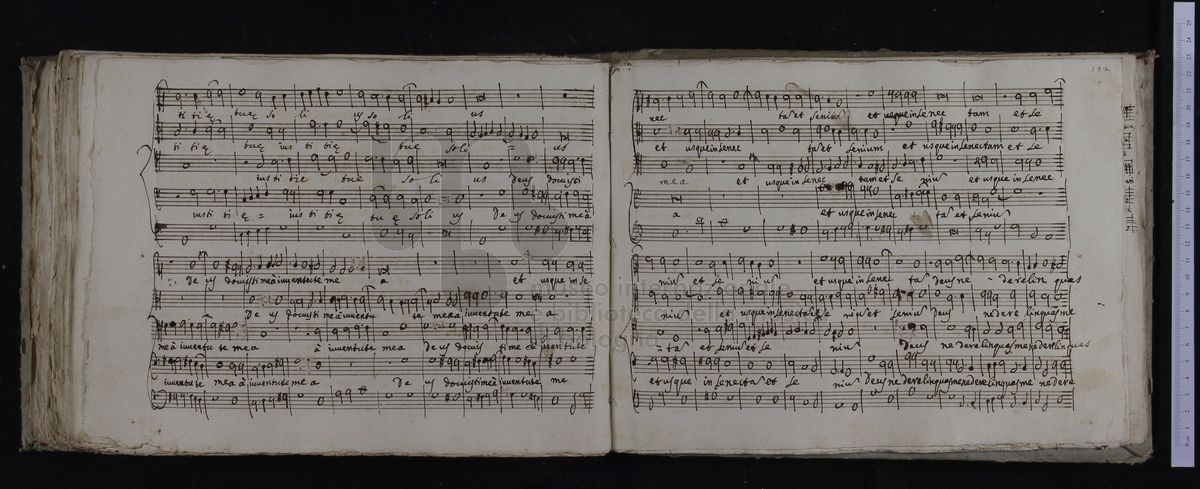 ti tię tuę so li ij so li us
ti tię tuę ius ti tię tuę soli = us
ius ti tię tuę so li us deus docuisti
iusti ti ę = ius ti tię tu ę soli ij De ij docuisti me à
De ij docuisti me à iuventute me a et usque in se
De ij docuisti me à iuventu te mea a iuventute me a
me à iuventu te mea à iuventute mea de ij docuis ti me à iuventute
iuventute mea à iuventute me a De ij docuisti me à iuventute me
132
nec ta et senium et usque in senec tam et se
et usque in senec ta et senium et usque in senectam et se
mea et usque in senec tam et se niu et usque in senec
a et usque in senec ta et seniu
niu et se niu et usque in senec ta Deus ne derelin quas
niu et usque in senecta et se niu et seniu Deus ne dere linquas me
ta et seniu et se niu Deus ne derelinquas me ne derelinquas
et usque in senecta et se niu Deus ne derelinquas me ne derelinquas me ne dere
museo internazionale
e biblioteca della
bologna